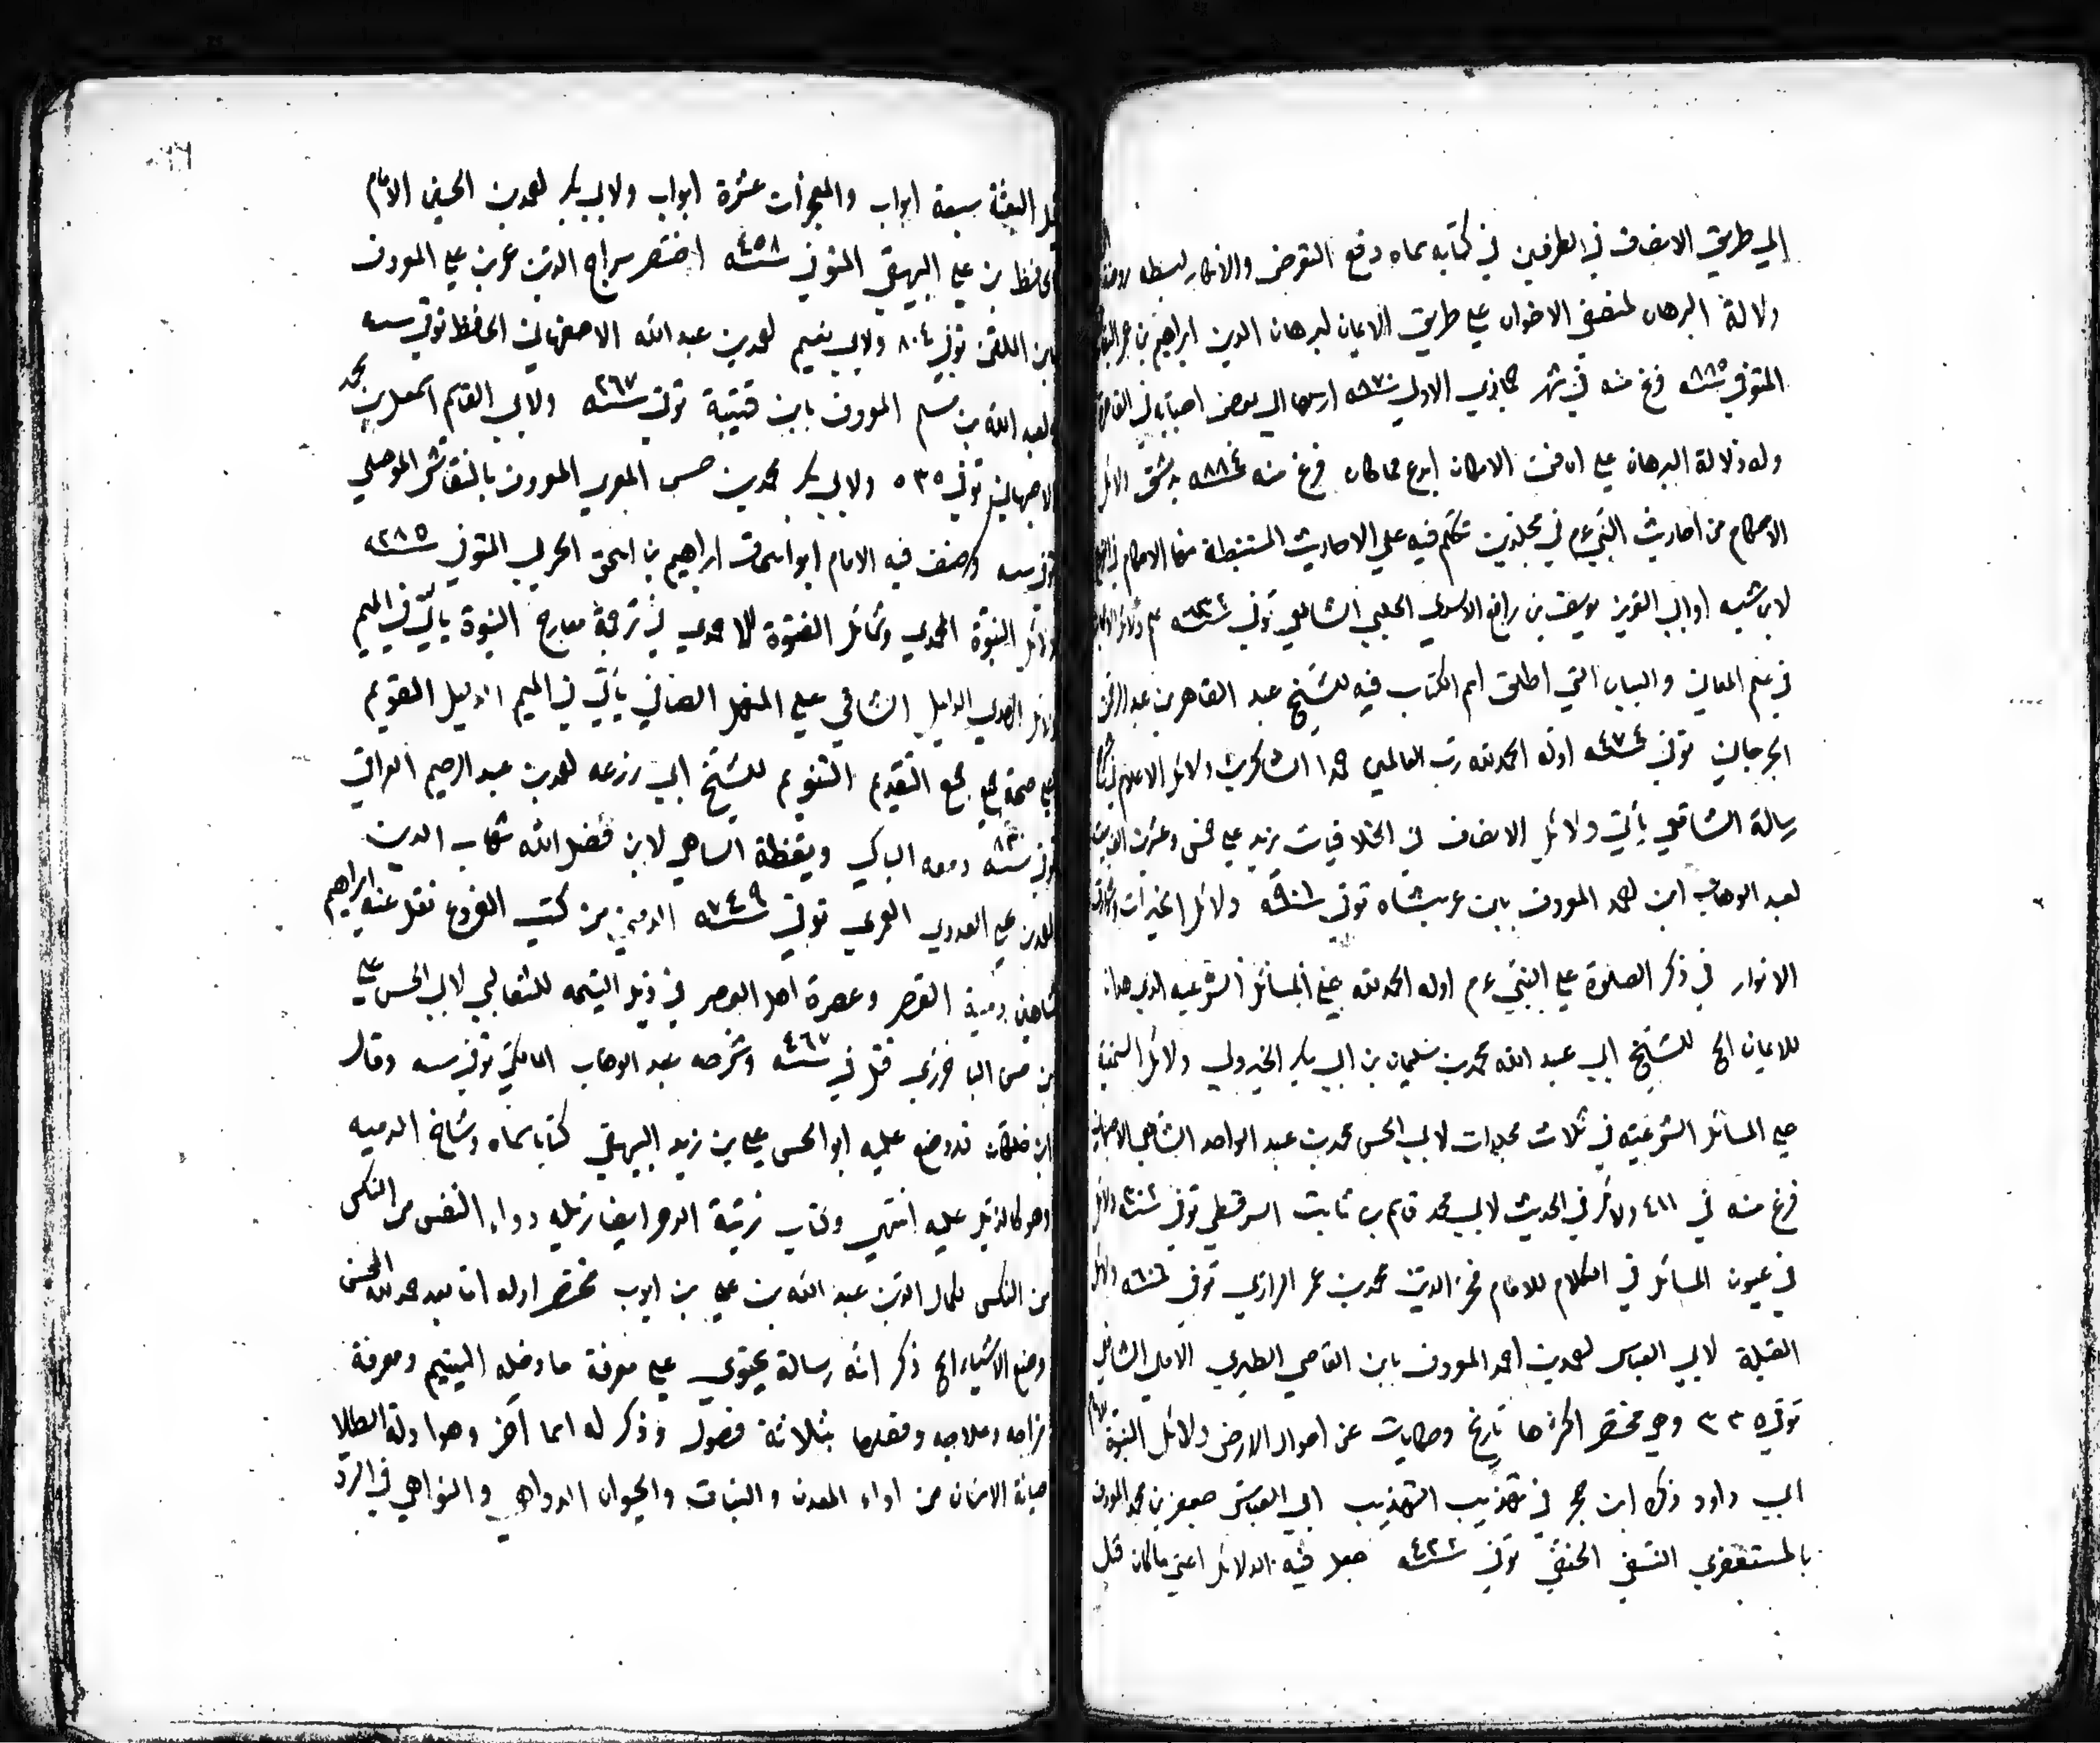 إلي طريق الانصاف في الطرفين في كتابه سماه دفع التعرض والانكار لبسطه روضة
دلالة البرهان لمنصفي الاخوان علي طريق الايمان لبرهان الدين ابراهيم بن عمر البقاعي
المتوفي سنة ٨٨٥ فرغ منه في شهر جماذي الاولي سنة ٨٧٠ ارسلها الي بعض اصحابه في القاهرة
وله دلالة البرهان علي ان في الامكان ابدع مما كان فرغ منه سنة ٨٨٤ بدمشق دلائل
الاحكام من احاديث النبي ءم في مجلدين تكلم فيه علي الاحاديث المستنبطة منها الاحكام في
لابن شيبه اوابي العزيز يوسف بن رافع الاسدي الحلبي الشافعي توفي سنة ٦٣٢
في علم المعاني والبيان التي اطلق ام الكتاب فيه للشيخ عبد القاهر بن عبد الرحمن
الجرجاني توفي سنة ٤٧٤ اوله الحمد لله رب العالمين حمدا الشاكرين دلائل الاعلام في شرح
رسالة الشافعي يأتي دلائل الانصاف في الخلافيات يزيد علي خمس وعشرين الف بيت
لعبد الوهاب ابن احمد المعروف بابن عربشاه توفي سنة ٩٠١ دلائل الخيرات وشوارق
الانوار في ذكر الصلوة علي النبي ءم اوله الحمد لله الذي هدانا
للايمان الخ للشيخ ابي عبد الله محمد بن سليمان بن ابي بكر الجزولي دلائل السمعية
علي المسائل الشرعية في ثلاث مجلدات لابي الحسن محمد بن عبد الواحد الشافعي الاصبهاني
فرغ منه في ٤١١ دلائل في الحديث لابي محمد قاسم بن ثابت السرقسطي توفي سنة ٣٠٢ دلائل
في عيون المسائل في الكلام للامام فخر الدين محمد بن عمر الرازي توفي سنة ٦٠٦ دلائل
القبلة لابي العباس احمد بن احمد المعروف بابن القاضي الطبري الاملي الشافعي
توفي ٣٣٥ وهي مختصر اكثرها تاريخ وحكايات عن احوال الارض دلائل النبوة للامام
ابي داود ذكره ابن حجر في تهذيب التهذيب ابي العباس جعفر بن محمد المعروف
بالمستغفري النسفي الحنفي توفي سنة ٤٣٢ جعل فيه الدلائل اعني ما كان قبل
البعثة سبعة ابواب والمعجزات عشرة ابواب ولابي بكر احمد بن الحسين الامام
الحافظ بن علي البيهقي المتوفي سنة ٤٥٨ اختصر سراج الدين عمر بن علي المعروف
بابن الملقن توفي ٨٠٤ ولابي نعيم احمد بن عبد الله الاصفهاني الحافظ توفي سنه
ولعبد الله بن مسلم المعروف بابن قتيبة توفي سنة ٢٦٧ ولابي القاسم اسمعيل بن محمد
الاصبهاني توفي ٥٣٥ ولابي بكر محمد بن حسن المقري المعروف بالنقاش الموصلي
توفي سنه وصنف فيه الامام ابو اسحاق ابراهيم بن اسحق الحربي المتوفي سنة ٢٨٥
دلائل النبوة المحمدي وشمائل الفتوة الاحمدي في ترجمة معارج النبوة يأتي في الميم
الدليل الشافي علي المنهل الصافي يأتي في الميم الدليل القويم
علي صحة جمع التقديم للشيخ ابي زرعه احمد بن عبد الرحيم العراقي
توفي سنة دمعه الباكي ويقظة الساهي لابن فضل الله شهاب الدين
احمد بن علي العدوي العمري توفي سنة ٧٤٩ من كتب الفروع نقل عنه ابراهيم
شاهين دمية القصر وعصرة اهل العصر في ذيل اليتيمه للثعالبي لابي الحسن علي
بن حسن الباخرزي قتل في سنة ٤٦٧ وشرحه عبد الوهاب المالكي توفي سنه وقال
ابن خلكان قد وضع عليه ابو الحسن علي بن زيد البيهقي كتابا سماه وشاح الدميه
وهو كالذيل عليه انتهي وكتاب زينة الدهر ايضا ذيله دواء النفس من النكس
من النكس لكمال الدين عبد الله بن علي بن ايوب مختصر اوله اما بعد حمد لله المحسن
وضع الاشياء الخ ذكر انه رسالة يحتوي علي معرفة ومعرفة
مزاجه وعلاجه وفصلها بثلاثة فصول وذكر له اسما آخر وهو
صيانة الانسان من اذاء المعدن والنبات والحيوان الدواهي والنواهي في الرد